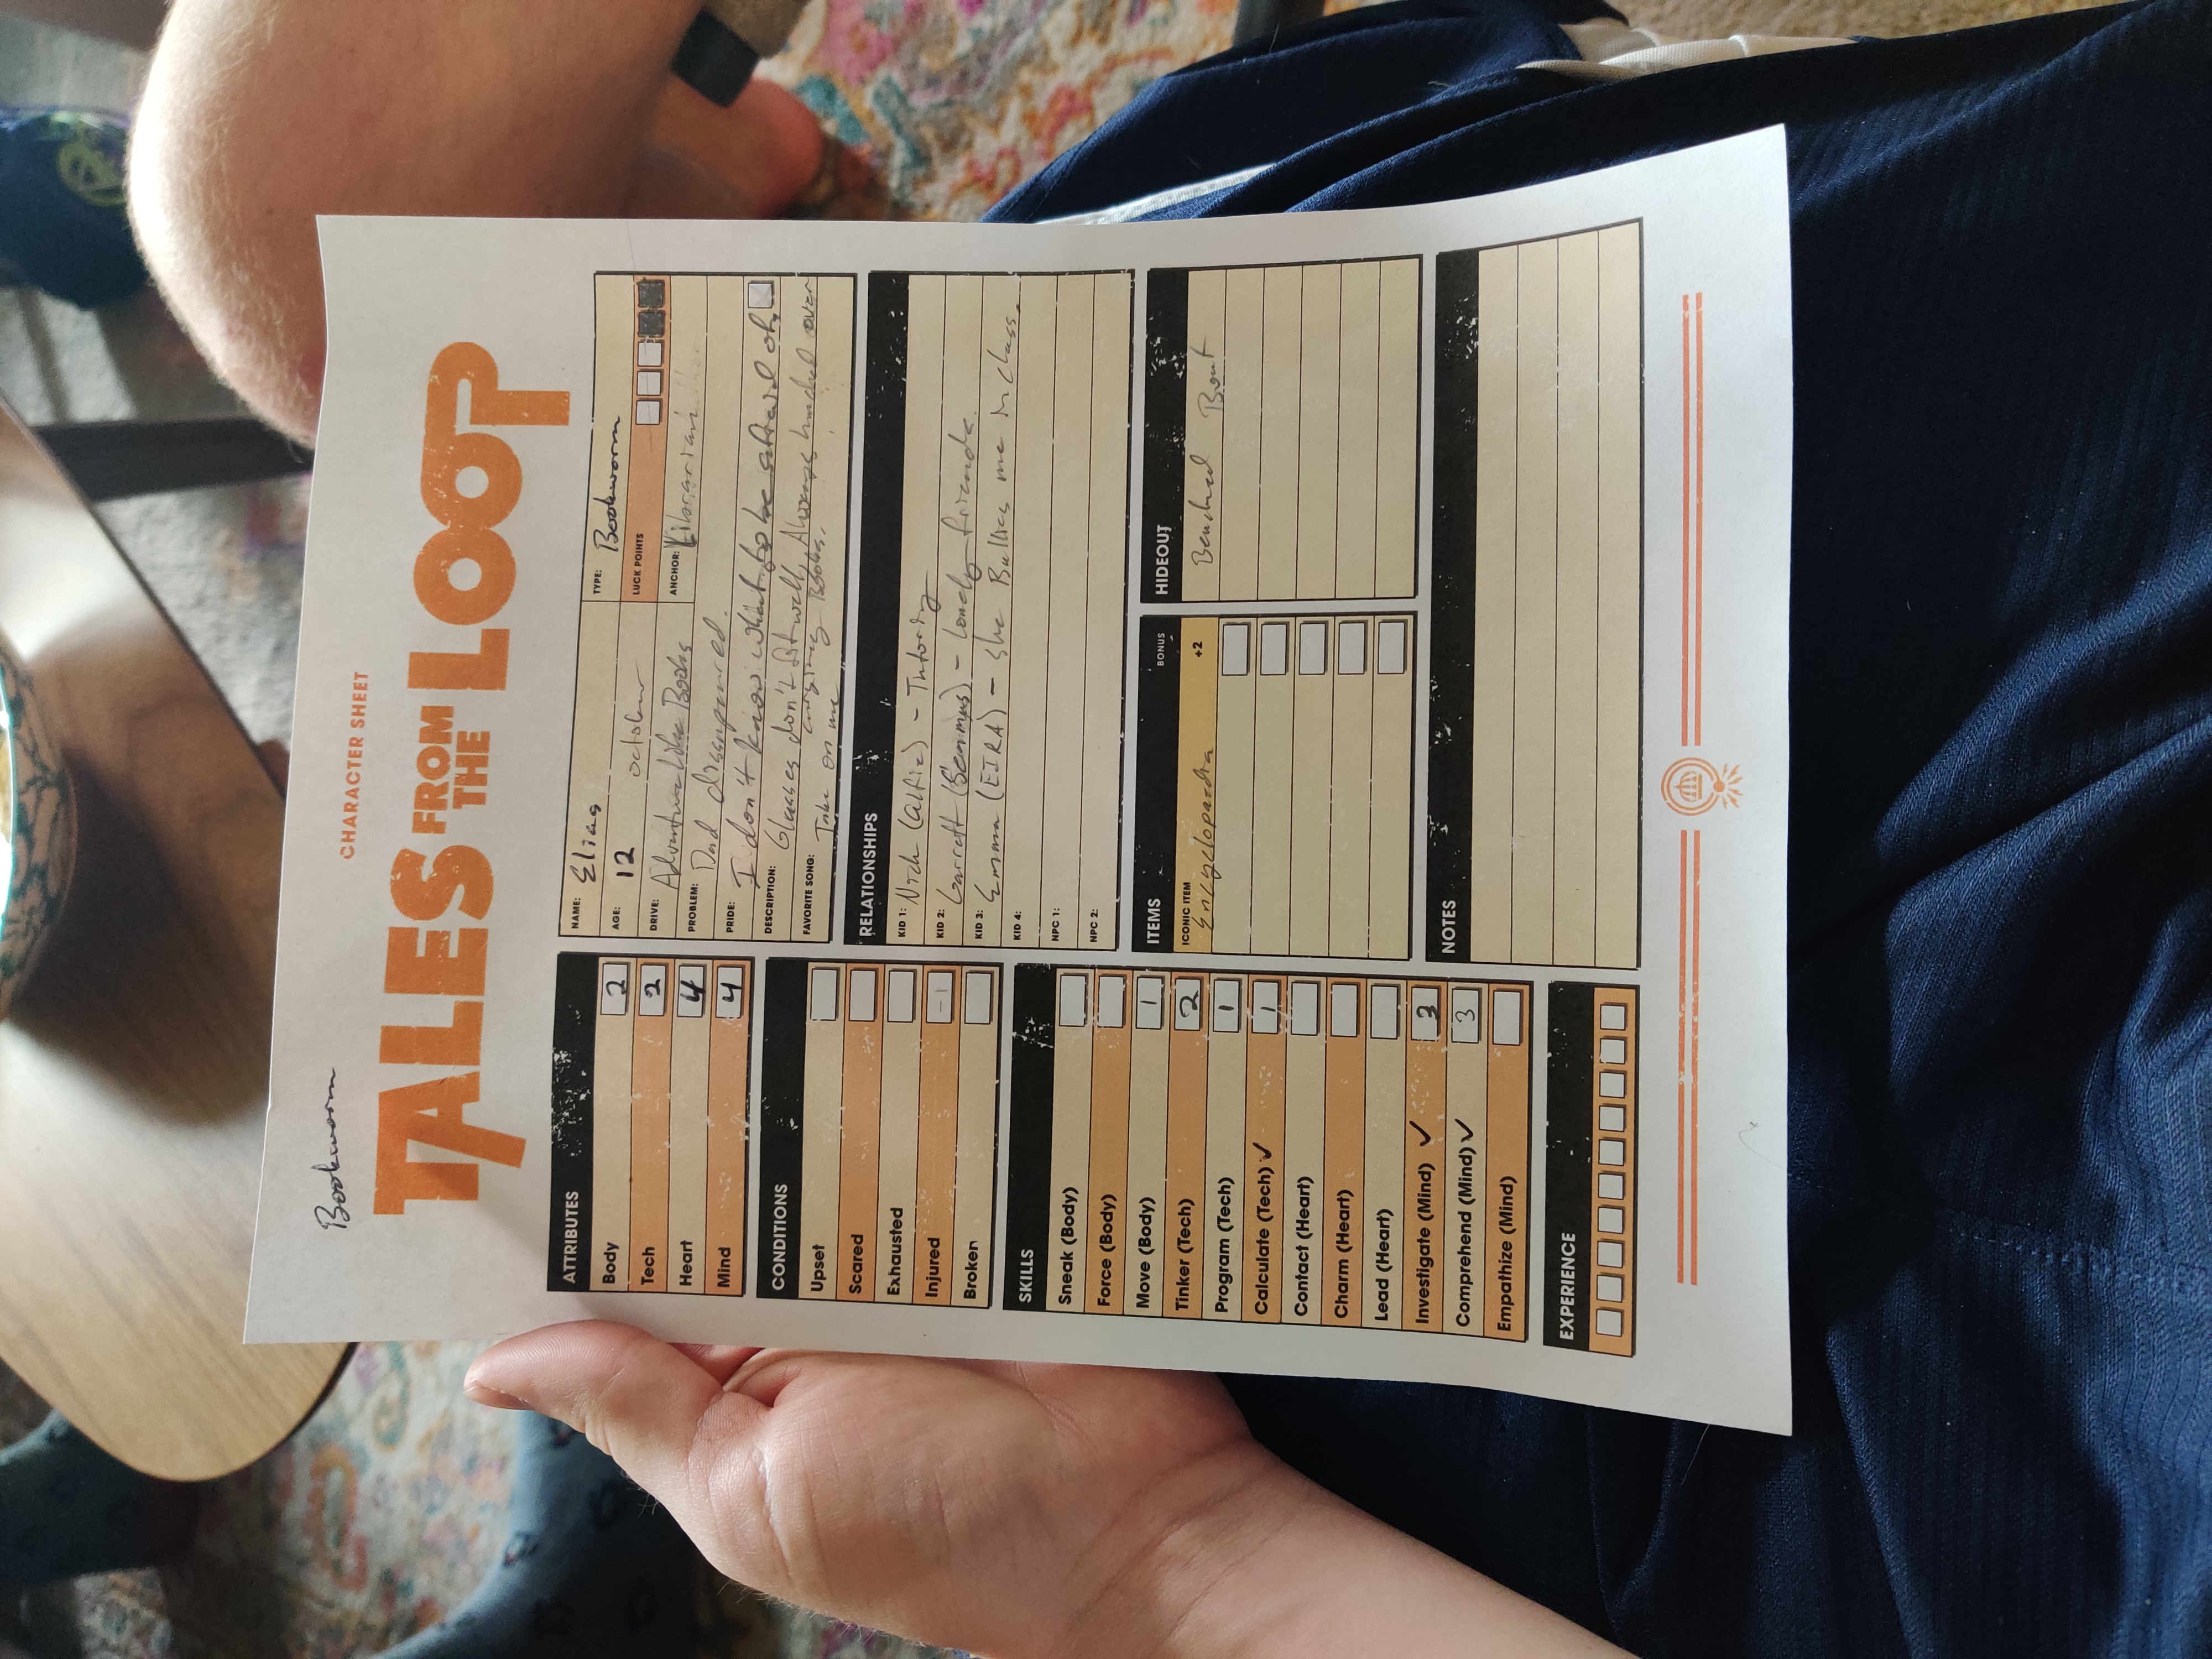 Bookworm
CHARACTER SHEET
TALES FROM THE LOOP
ATTRIBUTES
Body 2
Tech 2
Heart 4
Mind 4
CONDITIONS
Upset
Scared
Exhausted
Injured -1
Broken
SKILLS
Sneak (Body)
Force (Body)
Move (Body) 1
Tinker (Tech) 2
Program (Tech) 1
Calculate (Tech) ✓ 1
Contact (Heart)
Charm (Heart)
Lead (Heart)
Investigate (Mind) ✓ 3
Comprehend (Mind) ✓ 3
Empathize (Mind)
EXPERIENCE
NAME: Elias
TYPE: Bookworm
AGE: 12 october
LUCK POINTS
DRIVE: Adventure Like Books
ANCHOR: Librarian
PROBLEM: Dad dissapeared.
PRIDE: I don't know what to be afraid of.
DESCRIPTION: Glasses don't fit well, Always hunched over
carrying Books.
FAVORITE SONG: Take on me
RELATIONSHIPS
KID 1: Nick (Alfie) - Tutoring
KID 2: Garrett (Seamus) - lonely friends.
KID 3: Emma (EIRA) - she Bullies me in class.
KID 4:
NPC 1:
NPC 2:
ITEMS BONUS
ICONIC ITEM
Encyclopaedia +2
HIDEOUT
Beached Boat
NOTES